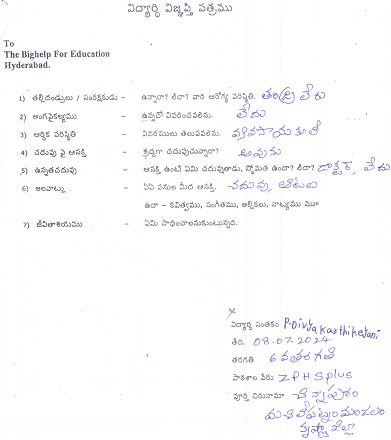 విద్యార్థి విజ్ఞప్తి పత్రము
To
The Bighelp For Education
Hyderabad.
1) తల్లిదండ్రులు / సంరక్షకుడు - ఉన్నారా? లేదా? వారి ఆరోగ్య పరిస్థితి. తండ్రి లేరు
2) అంగవైకల్యము - ఉన్నచో వివరించవలెను. లేదు
3) ఆర్థిక పరిస్థితి - వివరములు తెలుపవలెను. వ్యవసాయ కూలీ
4) చదువు పై ఆసక్తి - శ్రద్ధగా చదువుచున్నారా? అవును
5) ఉన్నతచదువు - ఆసక్తి ఉంటే ఏమి చదువుతాడు, స్తోమత ఉందా? లేదా? డాక్టర్, లేదు
6) అలవాట్లు - ఏఏ పనుల మీద ఆసక్తి. చదువు ఆటలు
ఉదా - కవిత్వము, సంగీతము, అల్లికలు, నాట్యము మొ॥
7) జీవితాశయము - ఏమి సాధించాలనుకుంటున్నది.
x
విద్యార్థి సంతకం P. Divya karthikeyani
తేది. 08.07.2024
తరగతి 6 వ తరగతి
పాఠశాల పేరు ZPHS plus
పూర్తి చిరునామా చిన్నాపురం
మచిలీపట్నం మండలం
కృష్ణా జిల్లా